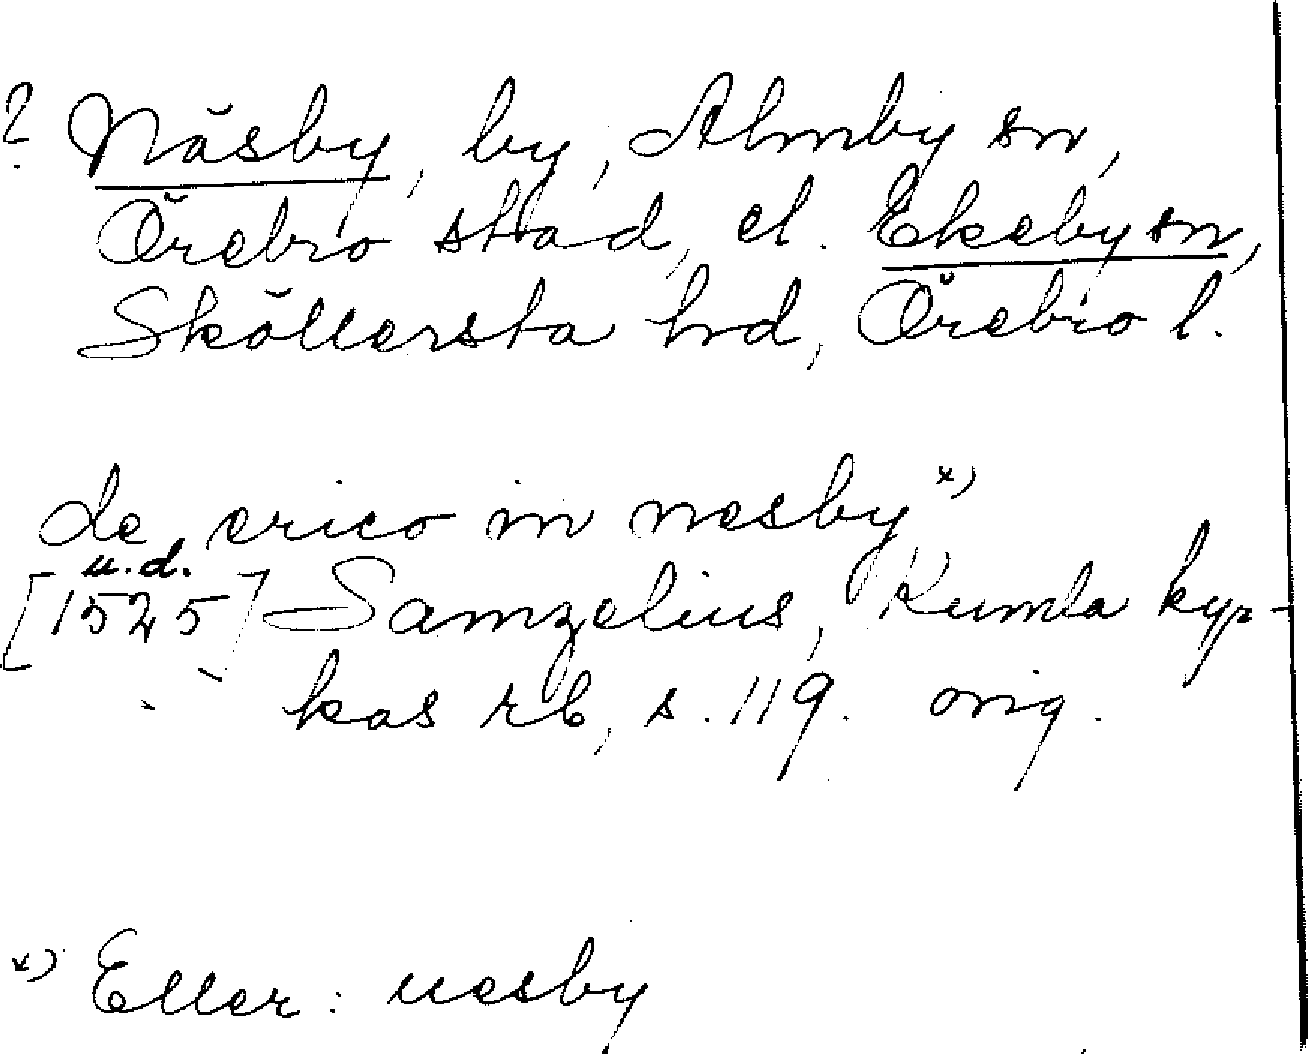 ? Näsby, by, Almby sn,
Örebro stad, el. Ekeby sn,
Sköllersta hd, Örebro l.
de erico in nesby *)
u.d.
[1525] Samzelius, Kumla kyr-
kas rb, s. 119. orig.
*) Eller: uesby